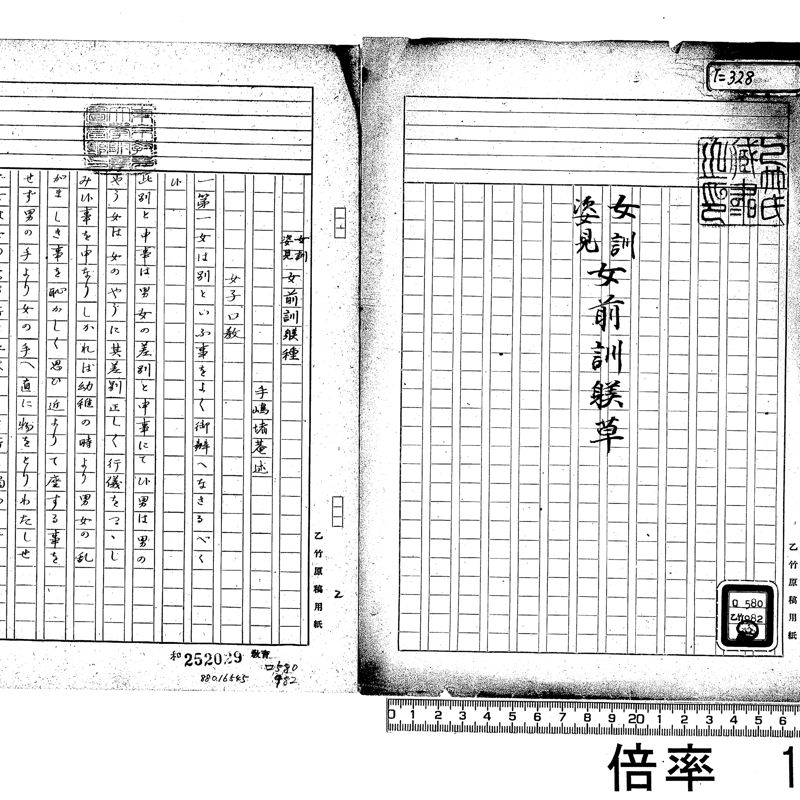 T=328
女訓
姿見
女前訓躾草
ロ580
乙竹982
乙竹原稿用紙
女訓
姿見
女前訓躾種
手嶋堵菴述
女子口教
一第一女は別といふ事をよく御辨へなさるべく
い
此別と申事は男女の差別と申事にてい男は男の
やう女は女のやうに其差別正しく行儀をつゝし
みい事を申なりしかれば幼稚の時より男女の乱
がましき事を恥かしく思ひ近よりて座する事を
せず男の手より女の手へ直に物をとりわたしせ
乙竹原稿用紙
2
和252029
教育
ロ580
982
88016545
0 1 2 3 4 5 6 7 8 9 20 1 2 3 4 5 6
倍率 1